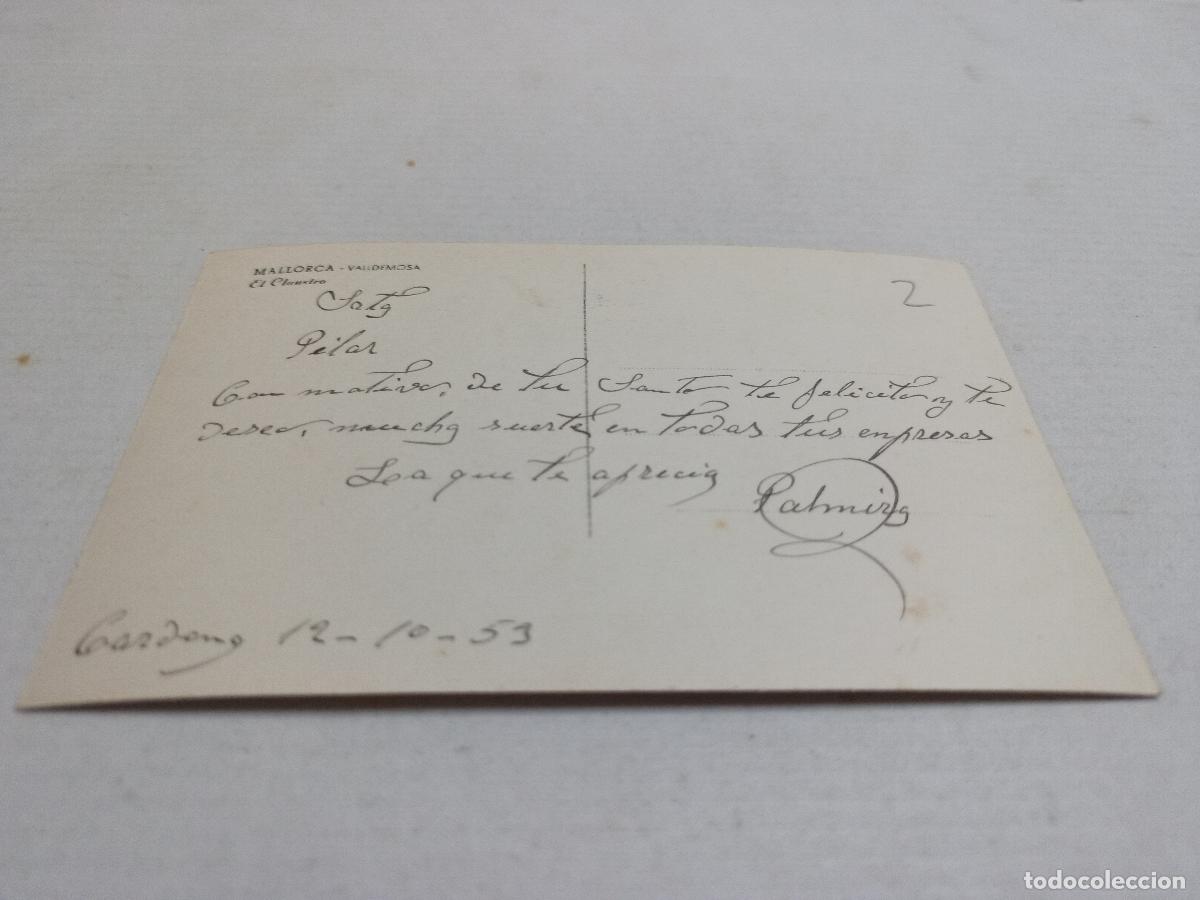 MALLORCA - VALLDEMOSA
El Claustro
2
Pilar
Con motivo, de tu Santo te felicito y te
deseo, mucha suerte en todas tus enpresas
La que te aprecia
Palmira
12-10-53
todocoleccion